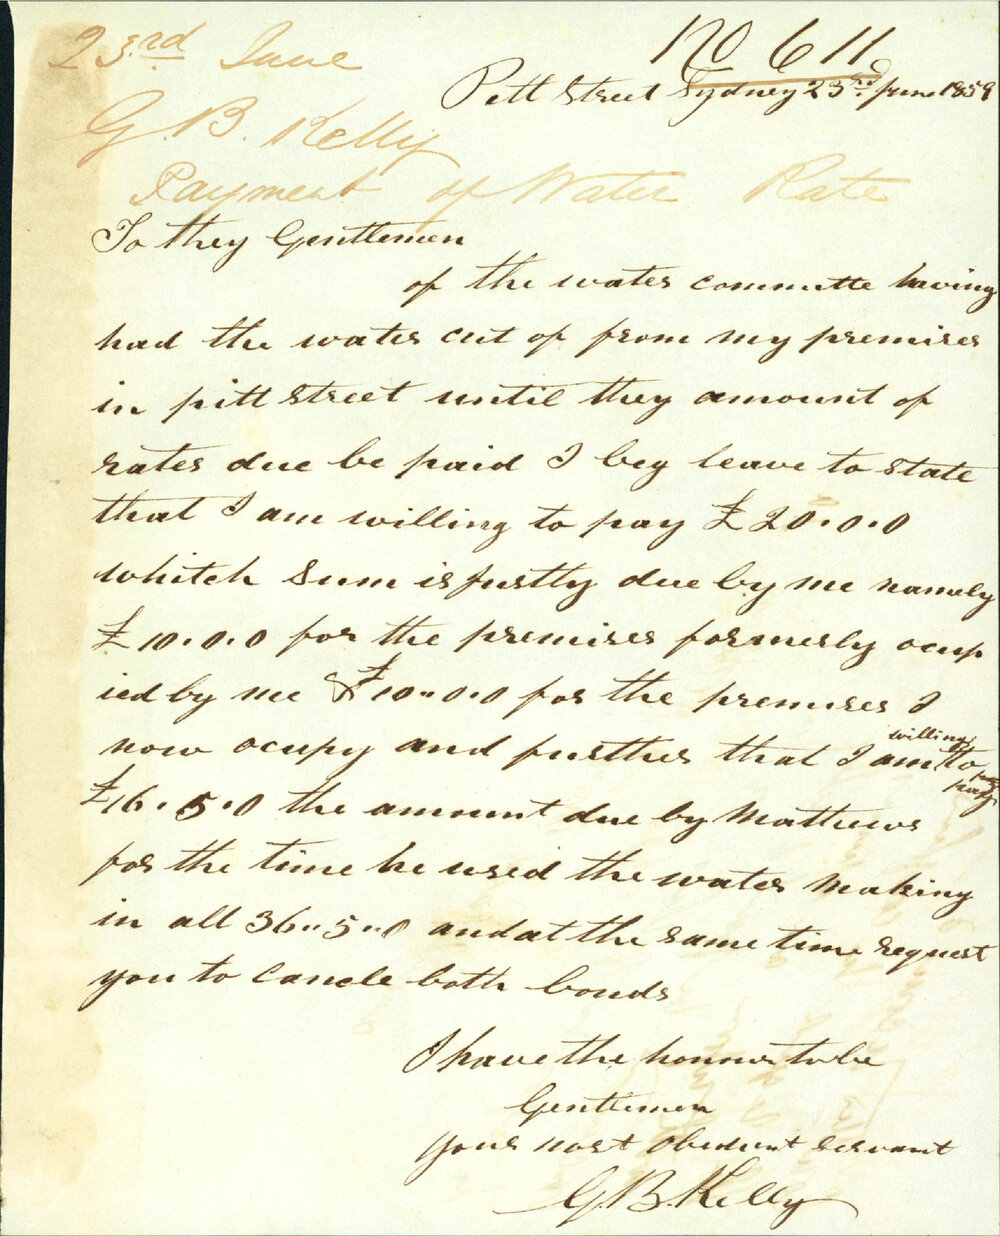 23rd June
No 611
Pitt Street Sydney 23rd June 1859
G. B. Kelly
Payment of Water Rate
To they Gentlemen
of the water committe having
had the water cut of from my premises
in pitt street until they amount of
rates due be paid I beg leave to state
that I am willing to pay £20.0.0
whitch sum is justly due by me namely
£10.0.0 for the premises formerly ocup
ied by me & £10.0.0 for the premises I
now ocupy and further that I am willing to pay
£16.5.0 the amount due by Mathews
for the time he used the water making
in all 36"5"0 and at the same time request
you to cancle both bonds
I have the honner to be
Gentlemen
your most obedient servant
G. B. Kelly